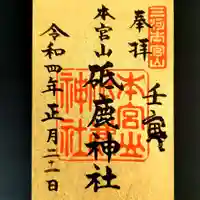 三河本宮山
奉拝
壬寅
本宮山
砥鹿神社
令和四年正月二十一日
本宮山
神社